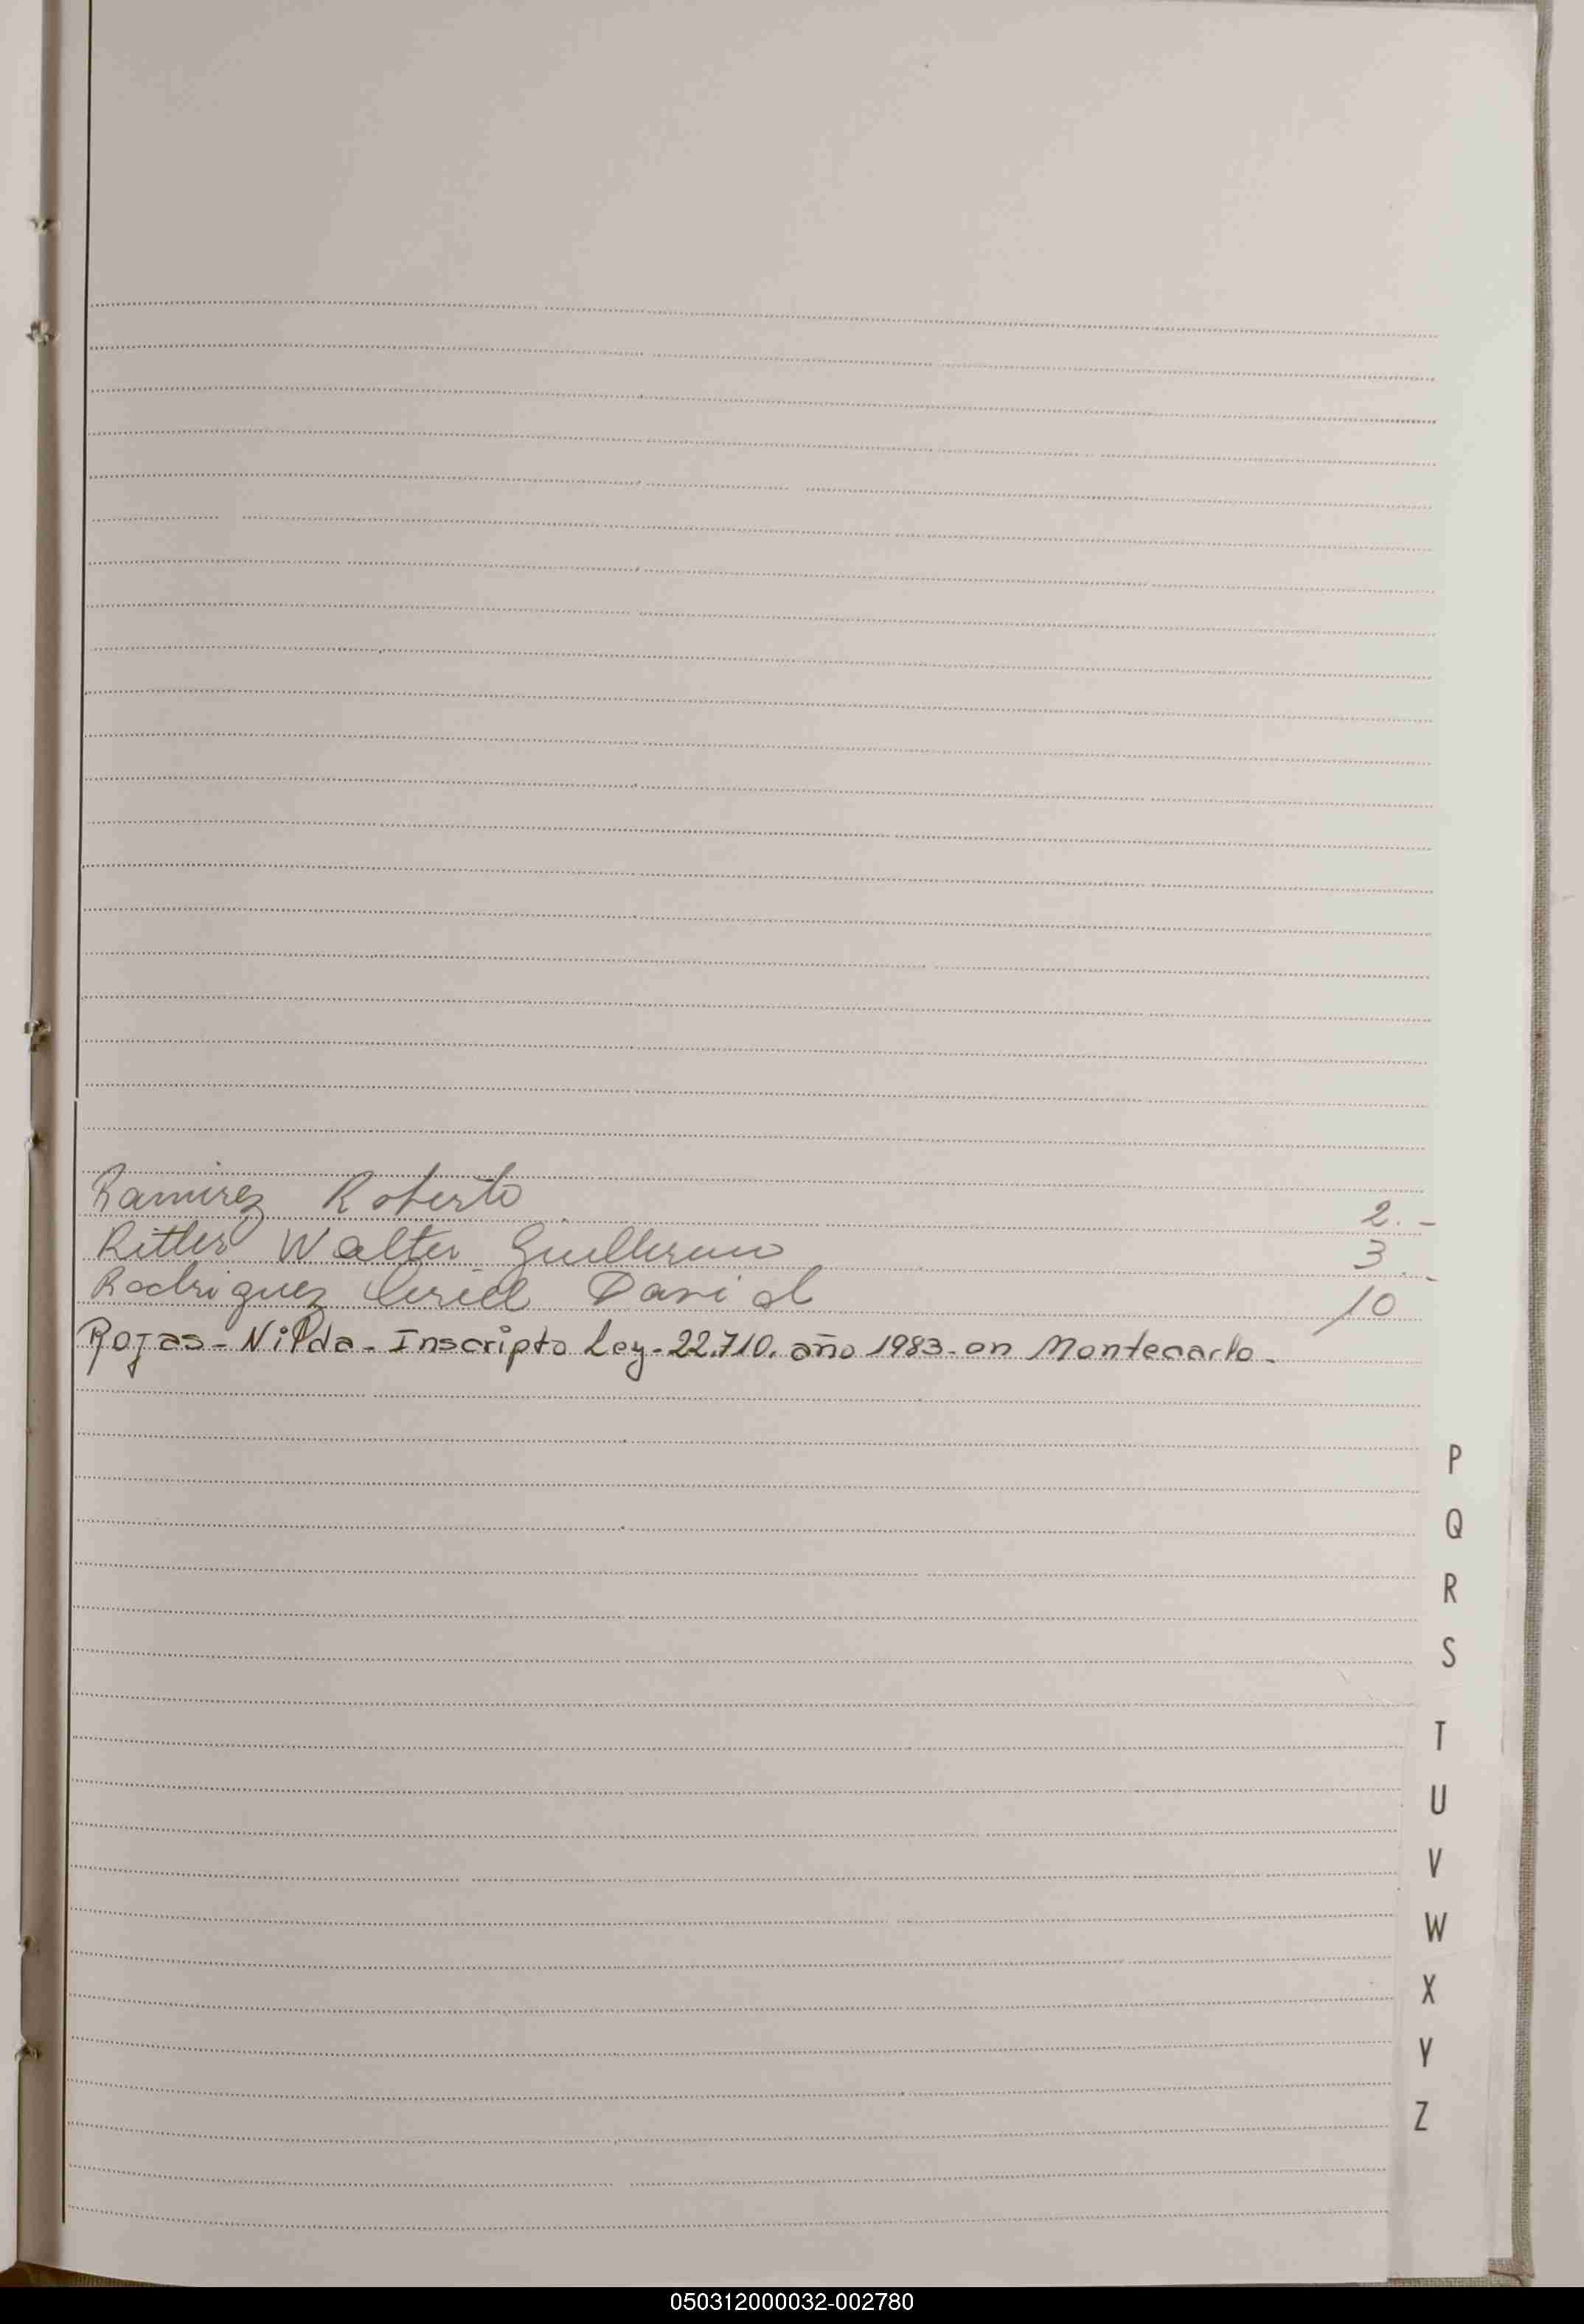 Ramirez Roberto 2.-
Ritter Walter Guillermo 3.-
Rodriguez David 10
Rojas - Nilda - Inscripto Ley - 22.710. año 1983 - en Montecarlo -
P
Q
R
S
T
U
V
W
X
Y
Z
050312000032-002780